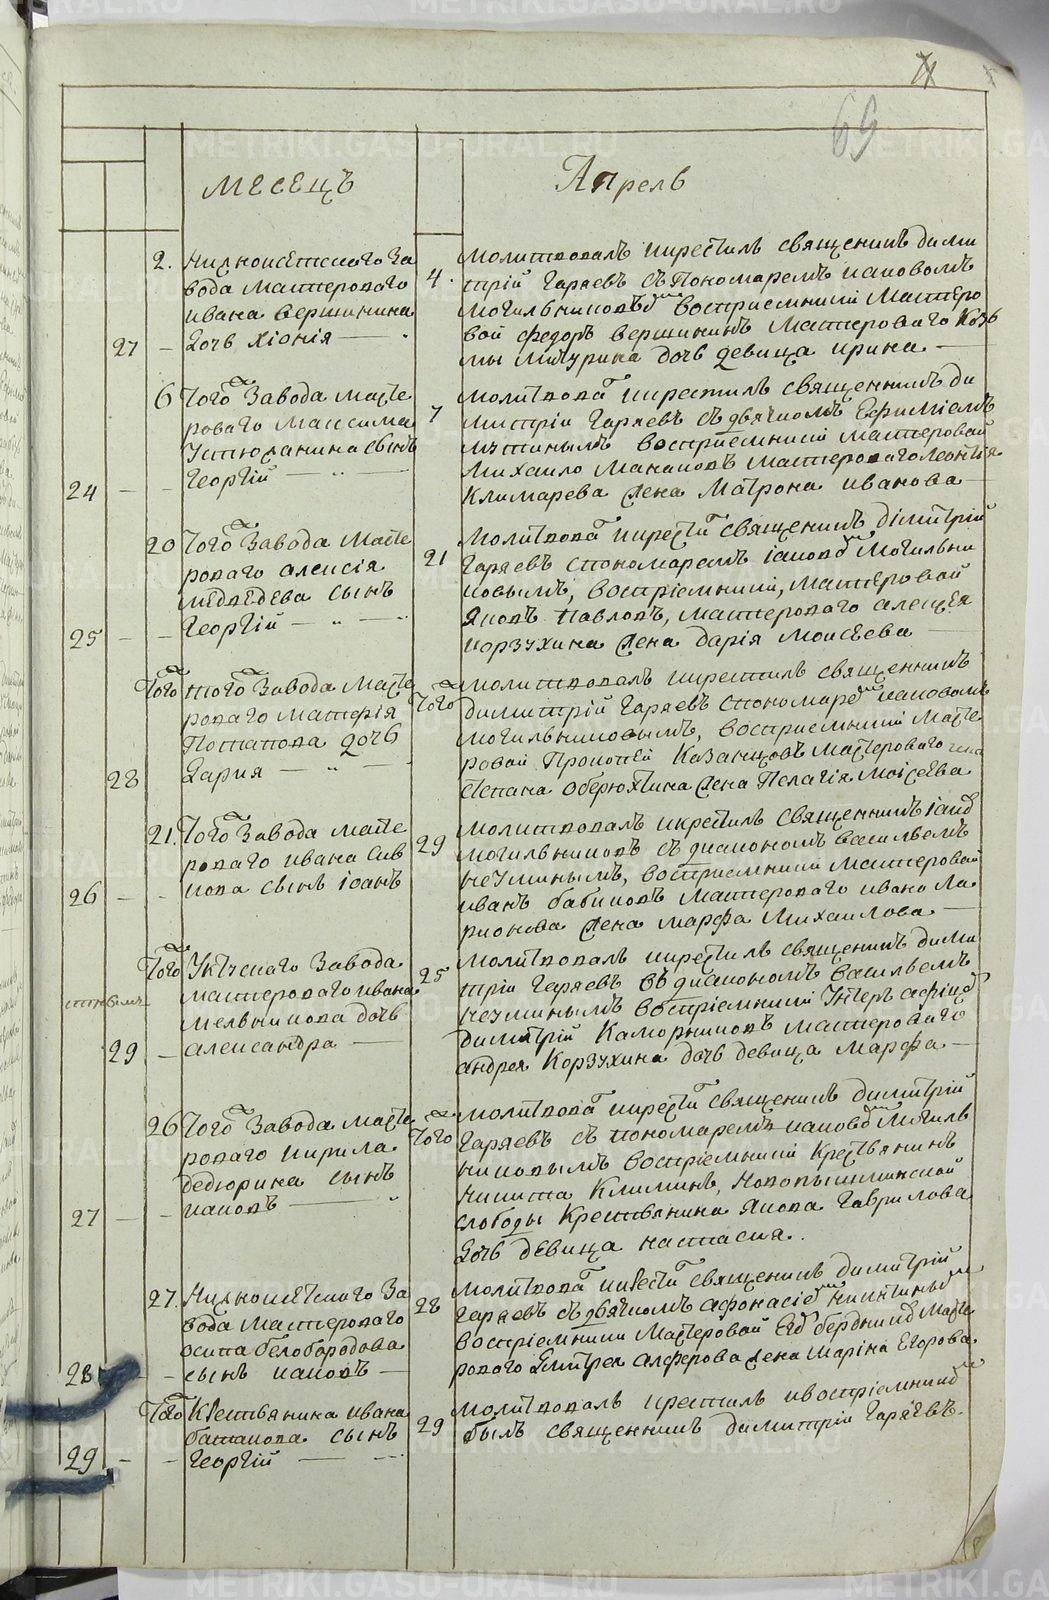 69
Месецъ
Апрель
2.
Нижноисетскаго За
вода мастероваго
ивана вершинина
27 — дочь хіонія —
4.
молитвовалъ икрестилъ священникъ дими
трій Гаряевъ съ Пономаремъ иаковомъ
Могильниковы^мъ восприемники Мастеро
вой федоръ вершининъ мастероваго Козь
мы Мичурина дочь девица ирина. —
6
Того Завода масте
роваго Максима
Устюжанина сынъ
24 — — Георгій
7
молитвова^л икрестилъ священникъ ди
митріи Гаряевъ съ дьячкомъ Ефиміемъ
восприемники мастеровой
Михаило мастероваго леонтия
Климарева жена Матрона иванова —
20
Того Завода масте
роваго алексія
медведева сынъ
25 — — Георгій —
21
молитвова^л икрести^л священникъ дімитрій
Гаряевъ спономаремъ іаково^м могильни
ковымъ, воспріемники, мастеровой
яковъ павловъ, мастероваго алеѯея
корзухина жена дарія Моисеева —
Того
того Завода масте
роваго матфія
Потапова дочь
28 дария —
Того
молитвовалъ икрестилъ священникъ
димитрій Гаряевъ спономаре^м иаковомъ
могильниковымъ, восприемники масте
ровой Прокопей Казанцовъ мастероваго
степана оберюхтина жена Пелагія Моісеева
21.
Того Завода масте
роваго ивана сив
кова сынъ іоанъ
26 — —
29
молитвовалъ икрестилъ священникъ іако^в
могильниковъ съ диакономъ васильемъ
нечкинымъ, восприемники мастеровой
иванъ бабиковъ мастероваго ивана ла
рионова жена марфа Михаилова —
Того
Уктускаго Завода
мастероваго ивана
мельникова дочь
29 — александра —
25
молитвовалъ икрестилъ священникъ дими
трій Гаряевъ съ диакономъ васильемъ
нечкинымъ воспріемники Унтеръ афіце^р
димитрій Каморниковъ мастероваго
андрея Корзухина дочь девица марфа —
26
Того Завода масте
роваго кирила
дедюрина сынъ
27 — — иаковъ —
Того
молитвова^л икрести^л священникъ димитрій
Гаряевъ съ пономаремъ иаково^м могиль
никовымъ воспріемники Крестьянинъ
никита Климинъ, новопышминской
слободы Крестьянина якова Гаврилова
дочь девица настасия.
27.
Нижноисетскаго За
вода мастероваго
осипа белобородова
28 — сынъ иаковъ —
28
молитвова^л икрести^л священникъ димитрій
Гаряевъ съ дьячкомъ афонасіе^м никитины^м
воспріемники мастеровой бердники^в масте
роваго Дмитрея алферова жена марина Егорова
Того
Крестьянина ивана
баталова сынъ
29 — — Георгій —
29
молитвовалъ крестилъ ивоспріемнико^м
былъ священникъ димитрій Гаряевъ.